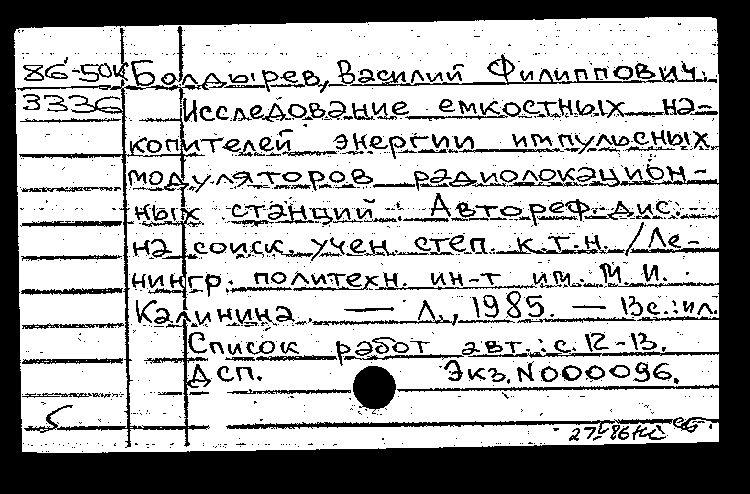 86-50к Болдырев, Василий Филиппович.
3336 Исследование емкостных на-
копителей энергии импульсных
модуляторов радиолокацион-
ных станций: Автореф. дис.
на соиск. учен. степ. к.т.н. /Ле-
нингр. политехн. ин-т им. М.И.
Калинина. — Л., 1985. — 13с.:ил.
Список работ авт.: с. 12-13.
ДСП. Экз. N000096.